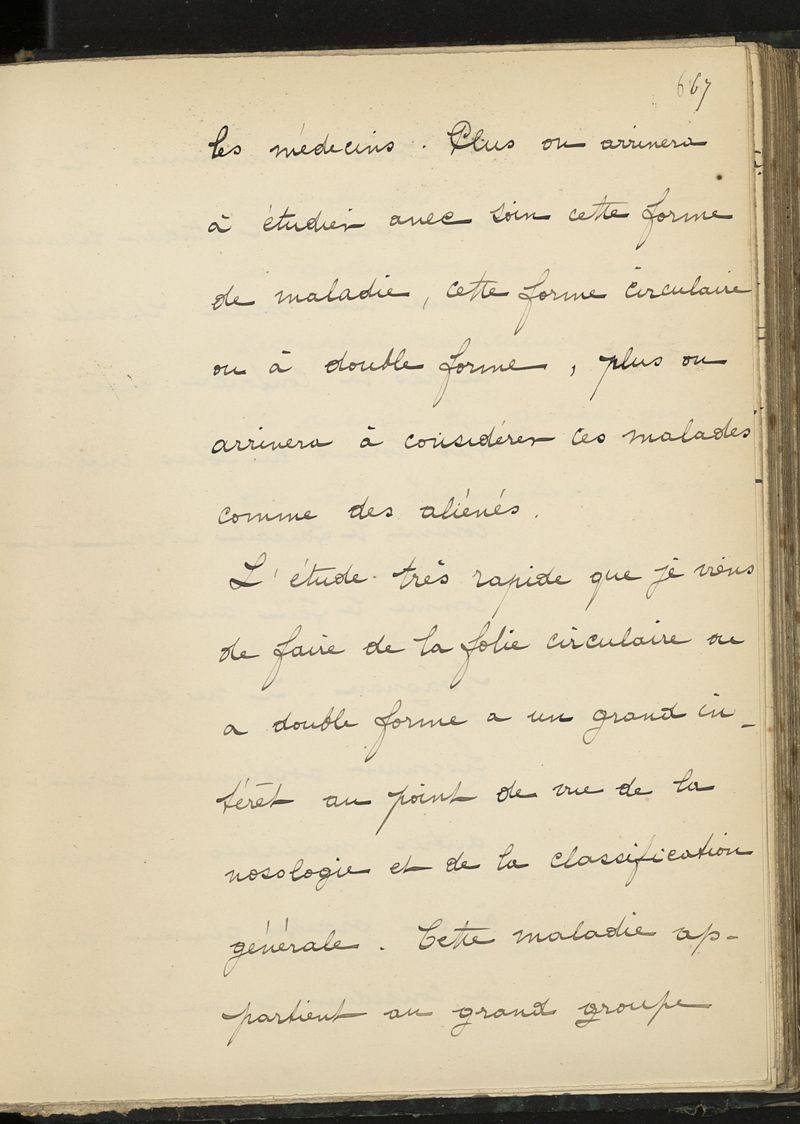 667
les médecins. Plus on arrivera
à étudier avec soin cette forme
de maladie, cette forme circulaire
ou à double forme, plus on
arrivera à considérer ces malades
comme des aliénés.
L'étude très rapide que je viens
de faire de la folie circulaire ou
a double forme a un grand in-
térêt au point de vue de la
nosologie et de la classification
générale. Cette maladie ap-
partient au grand groupe